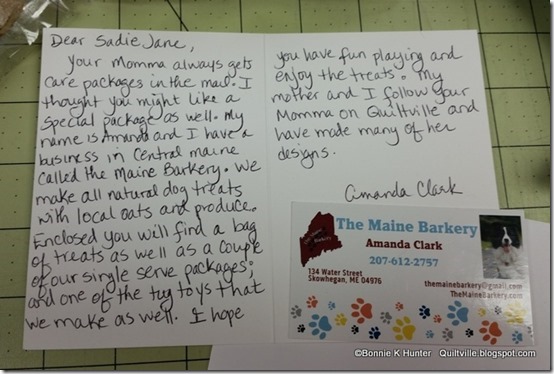 Dear Sadie Jane,
Your Momma always gets
care packages in the mail. I
thought you might like a
special package as well. My
name is Amanda and I have a
business in Central Maine
called the Maine Barkery. We
make all natural dog treats
with local oats and produce.
Enclosed you will find a bag
of treats as well as a couple
of our single serve packages,
and one of the tug toys that
we make as well. I hope
you have fun playing and
enjoy the treats. My
mother and I follow your
Momma on Quiltville and
have made many of her
designs.
Amanda Clark
The Maine Barkery
The Maine Barkery
Amanda Clark
207-612-2757
134 Water Street
Skowhegan, ME 04976
themainebarkery@gmail.com
TheMaineBarkery.com
©Bonnie K Hunter Quiltville.blogspot.com